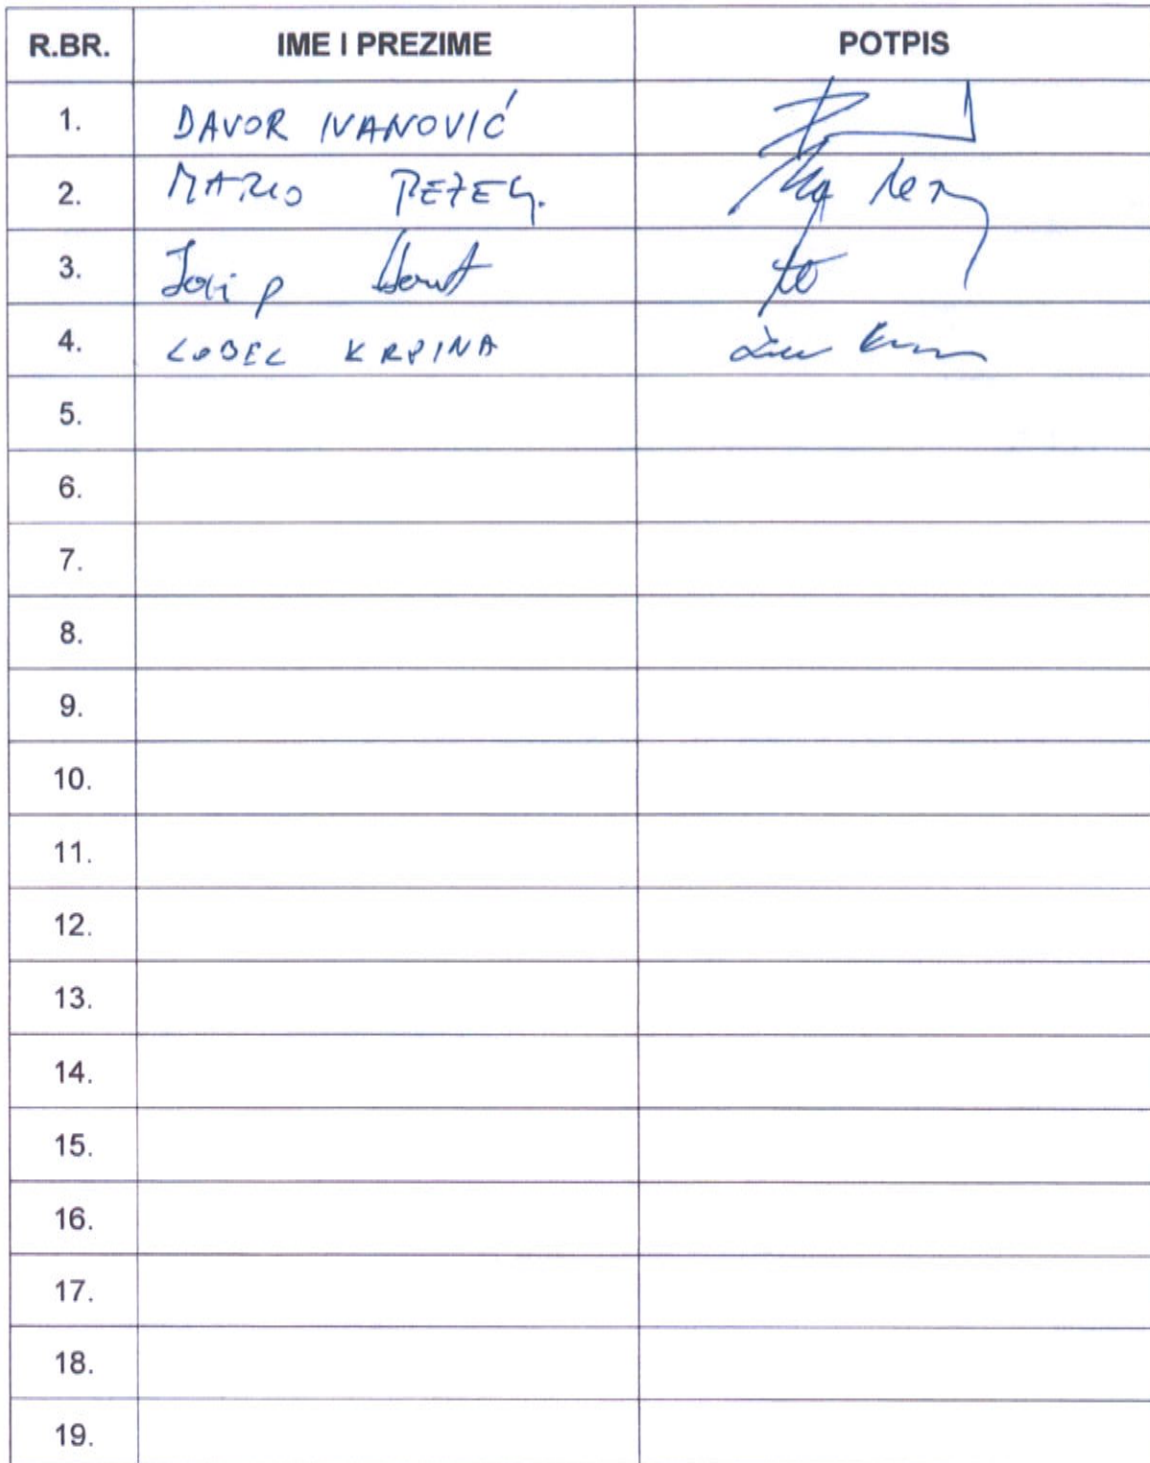 R.BR. IME I PREZIME POTPIS
1. DAVOR IVANOVIĆ
2. MARIO
3. Josip
4. KRPINA
5.
6.
7.
8.
9.
10.
11.
12.
13.
14.
15.
16.
17.
18.
19.